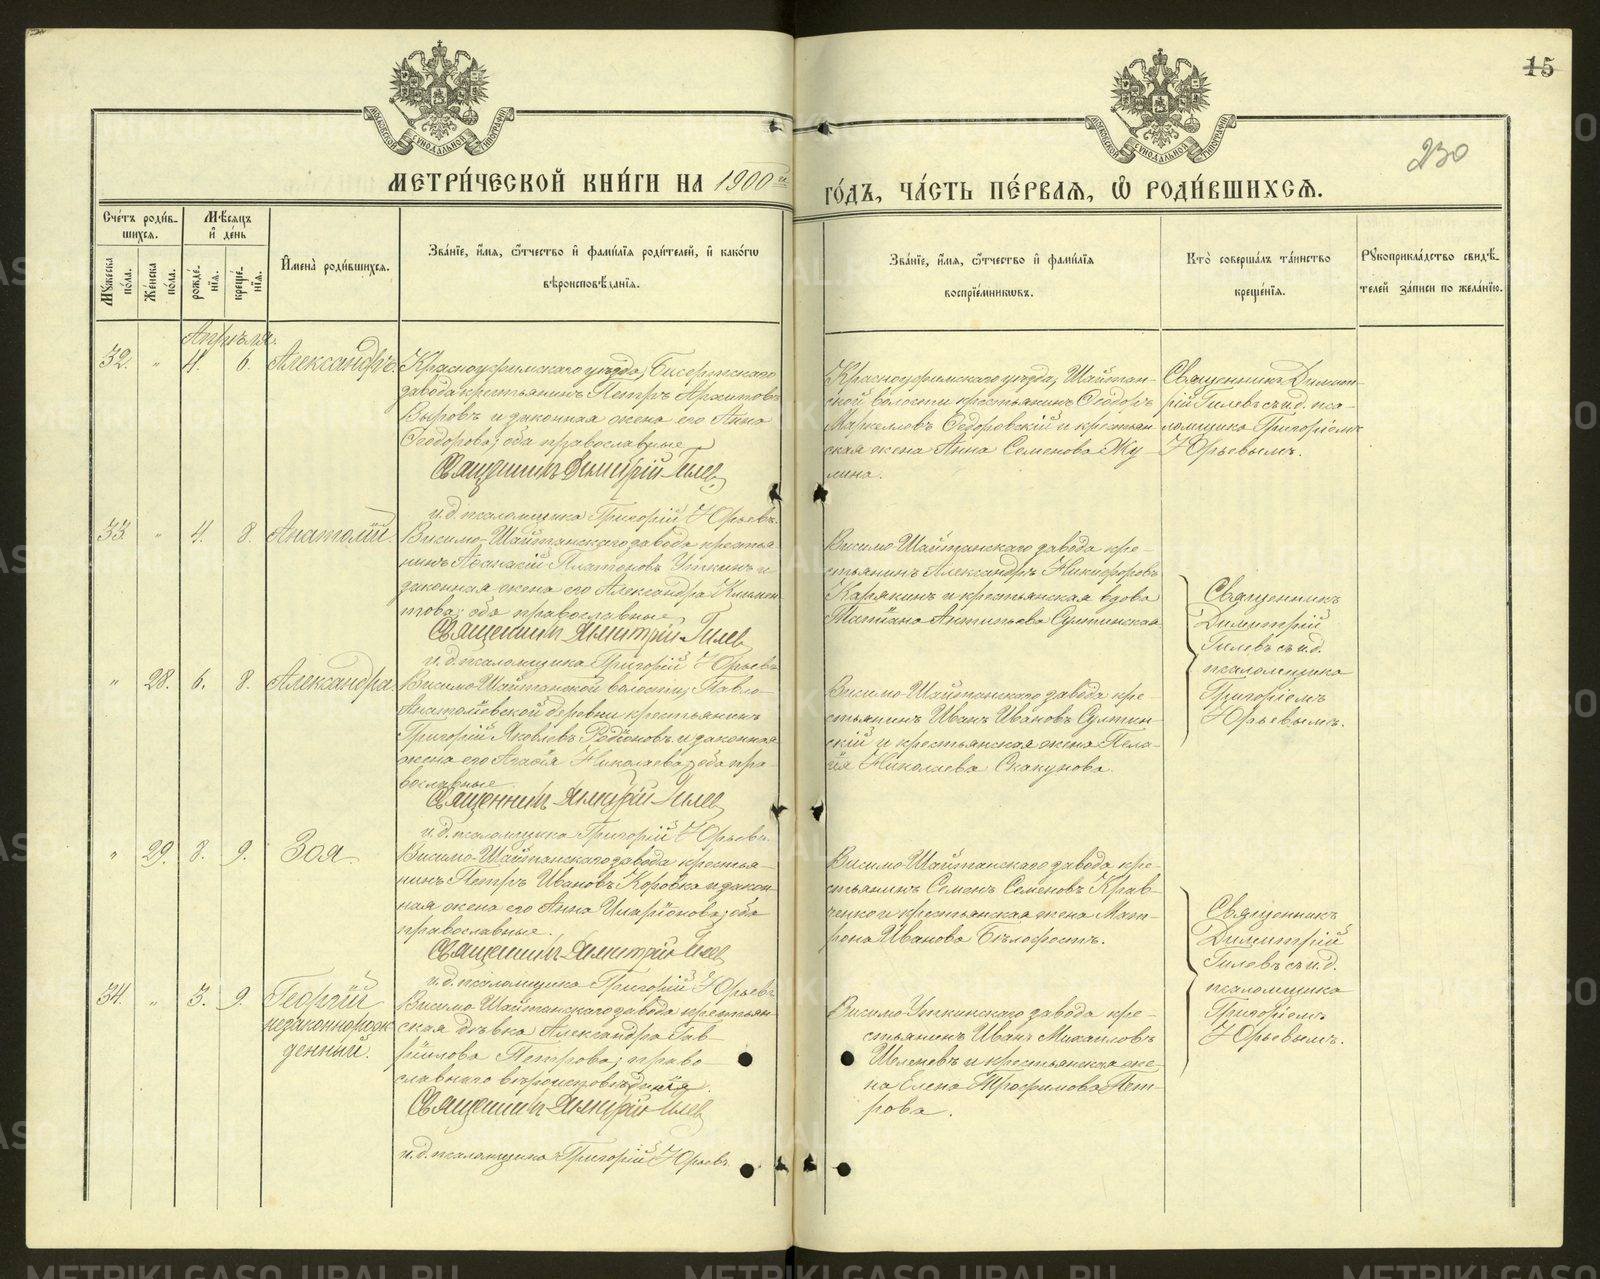 15
230
МОСКОВСКОЙ СѴНОДАЛЬНОЙ ТИПОГРАФІИ
МОСКОВСКОЙ СѴНОДАЛЬНОЙ ТИПОГРАФІИ
МЕТРИ́ЧЕСКОЙ КНИ́ГИ НА 1900й
ГО́ДЪ, ЧА́СТЬ ПЕ́РВАЯ, Ѡ҆ РОДИ́ВШИХСЯ.
Сче́тъ роди́в-
шихся.
Мꙋжеска по́ла.
Же́нска по́ла.
Мѣ́сяцъ
и҆ де́нь
рожде́-
нїя.
креще́-
нїя.
И҆мена̀ роди́вшихся.
Зва́нїе, и҆́мя, ѻ҆́тчество и҆ фами́лїя роди́телей, и҆ како́гѡ
вѣроисповѣ́данїя.
Зва́нїе, и҆́мя, ѻ҆́тчество и҆ фами́лїя
воспрїе́мникѡвъ.
Кто̀ соверша́лъ та́инство
креще́нїя.
Рꙋкоприкла́дство свидѣ́-
телей за́писи по жела́нїю.
Апрѣля.
32. " 4. 6. Александръ.
Красноуфимскаго уѣзда, Бисертскаго
завода крестьянинъ Петръ Архиповъ
Выровъ и законная жена его Анна
Ѳеодорова; оба православные
Священникъ Димитрій Гилевъ
и. д. псаломщика Григорій Юрьевъ.
Красноуфимскаго уѣзда, Шайтан-
ской волости крестьянинъ Ѳеодоръ
Маркелловъ Ѳедоровскій и крестьян
ская жена Анна Семенова Жу
лина.
Священникъ Димит-
рій Гилевъ съ и.д. пса-
ломщика Григоріемъ
Юрьевымъ.
33. " 4. 8. Анатолій
Висимо-Шайтанскаго завода крестья-
нинъ Аѳанасій Платоновъ Уткинъ и
законная жена его Александра Климен-
това; оба православные
Священникъ Димитрій Гилевъ
и. д. псаломщика Григорій Юрьевъ
Висимо-Шайтанскаго завода кре-
стьянинъ Александръ Никифоровъ
Карякинъ и крестьянская вдова
Татіана Антипьева Султинская
Священникъ
Димитрій
Гилевъ съ и.д.
псаломщика
Григоріемъ
Юрьевымъ.
" 28. 6. 8. Александра
Висимо-Шайтанской волости, Павло-
Анатоліевской деревни крестьянинъ
Григорій Яковлевъ Родіоновъ и законная
жена его Агаѳія Николаева; оба пра-
вославные
Священникъ Димитрій Гилевъ
и. д. псаломщика Григорій Юрьевъ.
Висимо-Шайтанскаго завода кре-
стьянинъ Иванъ Ивановъ Султин-
скій и крестьянская жена Пела-
гія Николаева Скакунова.
" 29. 8. 9. Зоя.
Висимо-Шайтанскаго завода крестья-
нинъ Петръ Ивановъ Коровка и закон-
ная жена его Анна Иларіонова; оба
православные.
Священникъ Димитрій Гилевъ
и. д. псаломщика Григорій Юрьевъ
Висимо-Шайтанскаго завода кре-
стьянинъ Семенъ Семеновъ Крав-
ченко и крестьянская жена Мат-
рона Иванова Бѣлохвостъ.
Священникъ
Димитрій
Гилевъ съ и.д.
псаломщика
Григоріемъ
Юрьевымъ.
34. " 3. 9. Георгій
незаконнорож
денный.
Висимо-Шайтанскаго завода крестьян-
ская дѣвка Александра Гав-
ріилова Петрова; право-
славнаго вѣроисповѣданія.
Священникъ Димитрій Гилевъ
и. д. псаломщика Григорій Юрьевъ.
Висимо-Уткинскаго завода кре-
стьянинъ Иванъ Михаиловъ
Шелневъ и крестьянская же-
на Елена Трофимова Пет-
рова.
METRIKI.GASO-URAL.RU